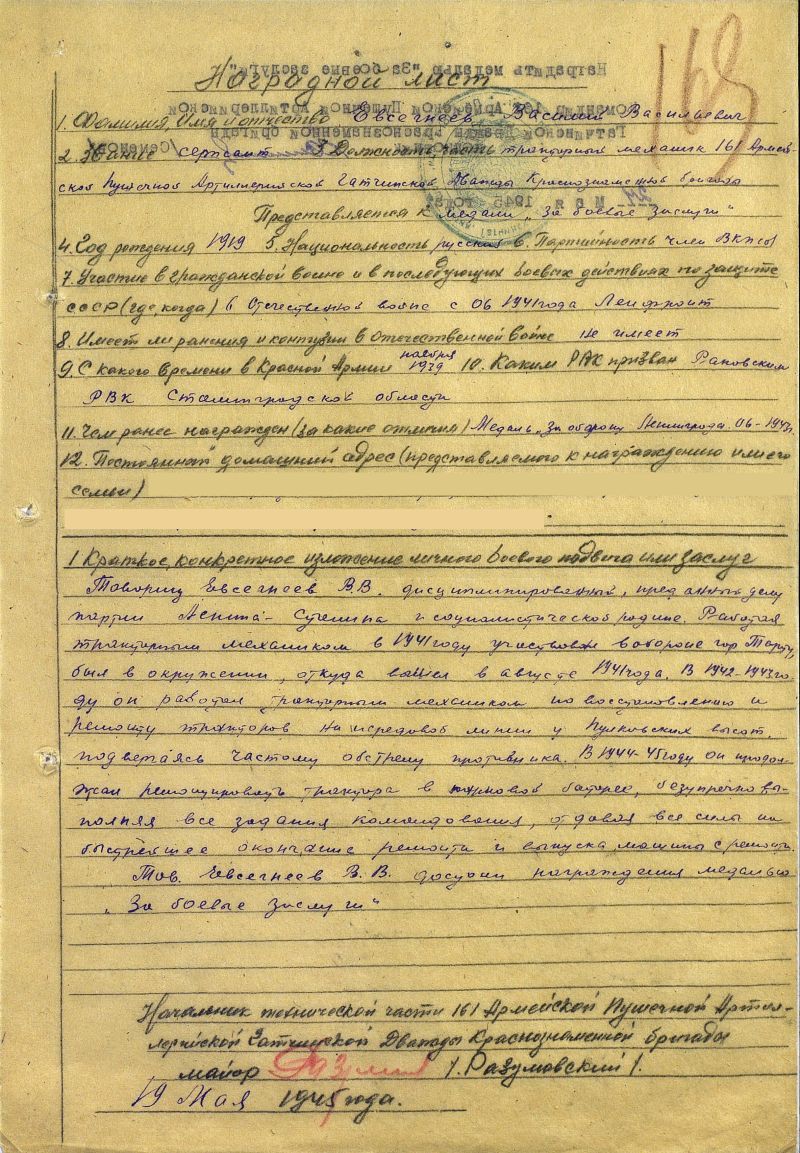 163
Наградной лист
1. Фамилия, Имя и отчество Евсегнеев Василий Васильевич
2. Звание сержант 3. Должность, часть тракторный механик 161 Армей-
ской Пушечной Артиллерийской Гатчинской Дважды Краснознаменной бригады
Представляется к медали „За боевые заслуги"
4. Год рождения 1919 5. Национальность русский 6. Партийность член ВКП(б)
7. Участие в гражданской войне и в последующих боевых действиях по защите
СССР (где, когда) в Отечественной войне с 06 1941 года Ленфронт
8. Имеет ли ранения и контузии в отечественной войне не имеет
9. С какого времени в Красной Армии ноября 1939 10. Каким РВК призван Раковским
РВК Сталинградской области
11. Чем ранее награжден (за какие отличия) Медаль „За оборону Ленинграда. 06-1943г.
12. Постоянный домашний адрес (представляемого к награждению или его
семьи)
1 Краткое, конкретное изложение личного боевого подвига или заслуг
Товарищ Евсегнеев В.В. дисциплинированный, преданный делу
партии Ленина-Сталина и социалистической родине. Работая
тракторным механиком в 1941 году участвовал в обороне гор Тарту,
был в окружении, откуда вышел в августе 1941 года. В 1942-1943 го-
ду он работал тракторным механиком по восстановлению и
ремонту тракторов на передовой линии у Пулковских высот,
подвергаясь частому обстрелу противника. В 1944-45 году он продол-
жал ремонтировать трактора в батарее, безупречно вы-
полняя все задания командования, отдавая все силы на
быстрейшее окончание ремонта и выпуска машины с ремонта.
Тов. Евсегнеев В.В. достоин награждения медалью
„За боевые заслуги"
Начальник технической части 161 Армейской Пушечной Артил-
лерийской Гатчинской Дважды Краснознаменной бригады
майор /Разумовский/.
19 Мая 1945 года.